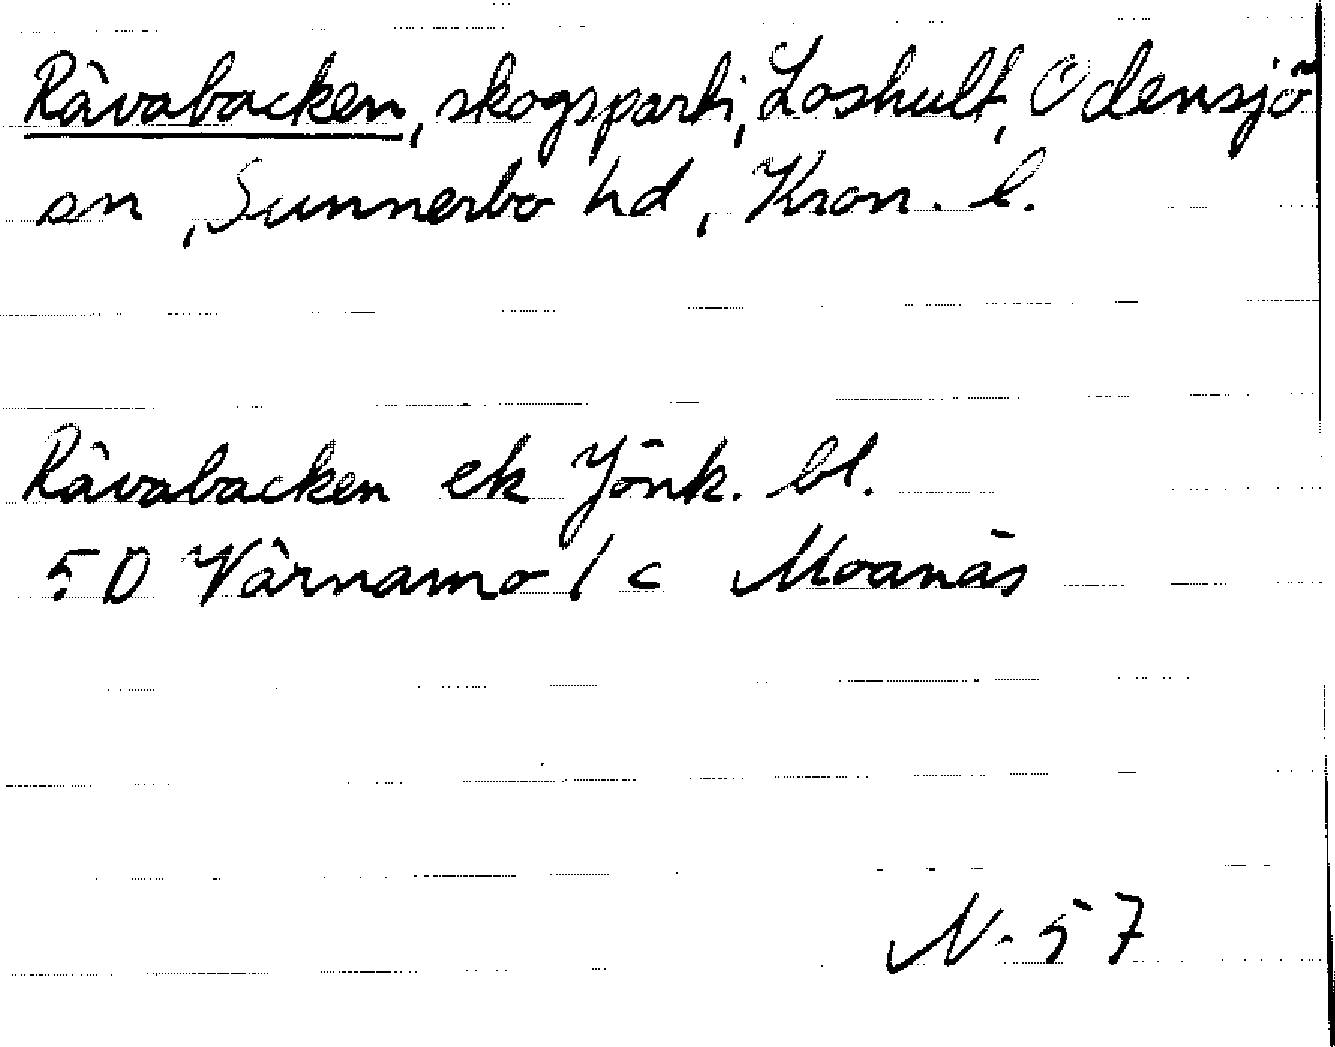 Rävabacken, skogsparti, Loshult, Odensjö
sn, Sunnerbo hd, Kron. l.
Rävabacken ek Jönk. bl.
5D Värnamo / c Moanäs
N. 57